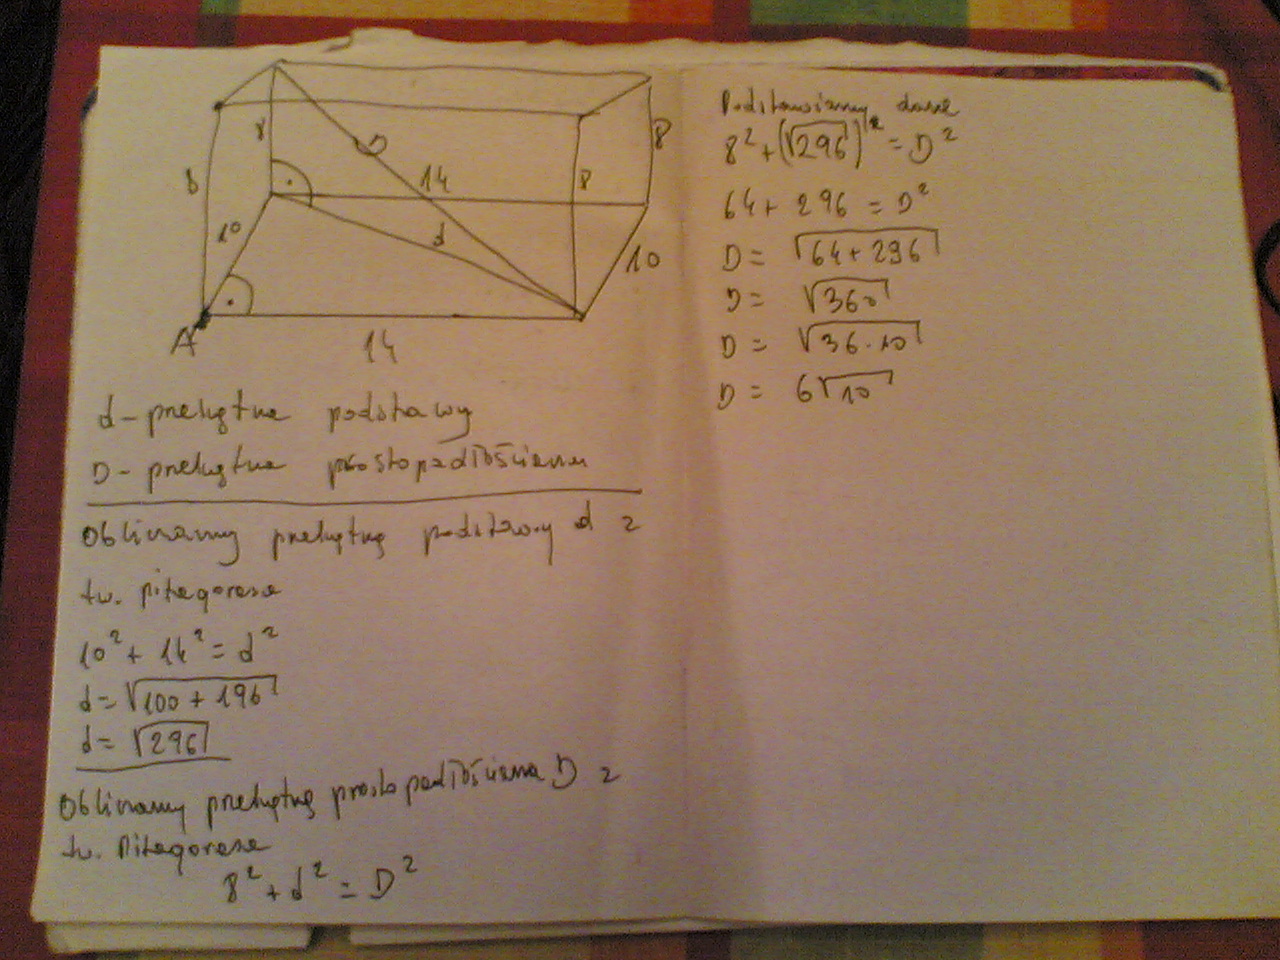 8
D
8
8
14
8
10
d
10
A
14
d - przekątna podstawy
D - przekątna prostopadłościanu
Obliczamy przekątną podstawy d z
tw. pitagorasa
10² + 14² = d²
d = √100 + 196
d = √296
Obliczamy przekątną prostopadłościana D z
tw. Pitagorasa
8² + d² = D²
Podstawiamy dane
8² + (√296)² = D²
64 + 296 = D²
D = √64 + 296
D = √360
D = √36 · 10
D = 6√10